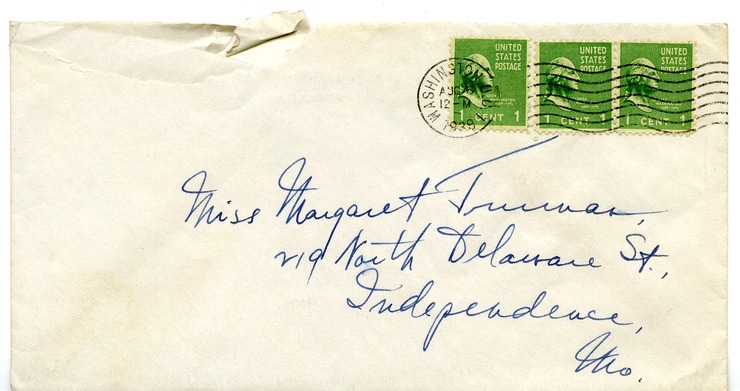 UNITED STATES POSTAGE
UNITED STATES POSTAGE
UNITED STATES POSTAGE
WASHINGTON
AUG
12 M
1939
1 CENT 1
1 CENT 1
1 CENT 1
Miss Margaret Truman,
219 North Delaware St.,
Independence,
Mo.